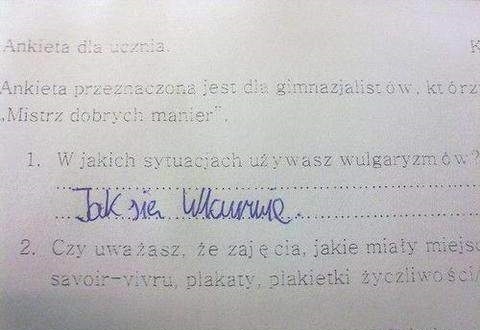 Ankieta dla ucznia. K
Ankieta przeznaczona jest dla gimnazjalistów, którzy
„Mistrz dobrych manier”.
1. W jakich sytuacjach używasz wulgaryzmów?
Jak się wkurwię.
2. Czy uważasz, że zajęcia, jakie miały miejsc
savoir-vivru, plakaty, plakietki życzliwości/